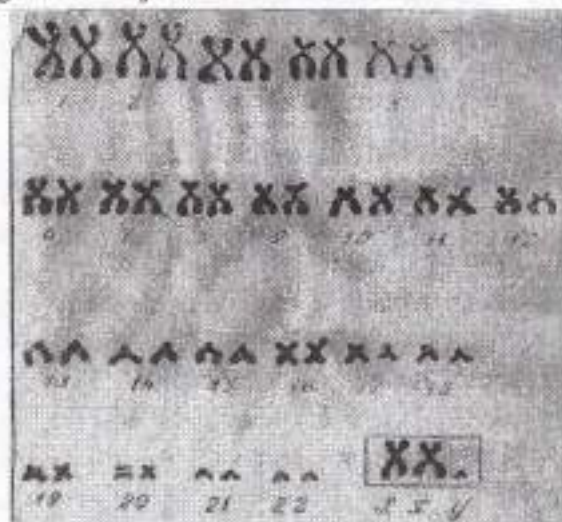 1 2 5
6 7 9 10 11 12
13 14 15 16 17 18
19 20 21 22 X X Y